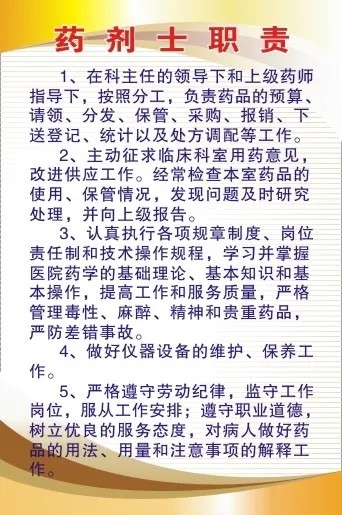 药剂士职责
1、在科主任的领导下和上级药师
指导下，按照分工，负责药品的预算、
请领、分发、保管、采购、报销、下
送登记、统计以及处方调配等工作。
2、主动征求临床科室用药意见，
改进供应工作。经常检查本室药品的
使用、保管情况，发现问题及时研究
处理，并向上级报告。
3、认真执行各项规章制度、岗位
责任制和技术操作规程，学习并掌握
医院药学的基础理论、基本知识和基
本操作，提高工作和服务质量，严格
管理毒性、麻醉、精神和贵重药品，
严防差错事故。
4、做好仪器设备的维护、保养工
作。
5、严格遵守劳动纪律，监守工作
岗位，服从工作安排；遵守职业道德，
树立优良的服务态度，对病人做好药
品的用法、用量和注意事项的解释工
作。